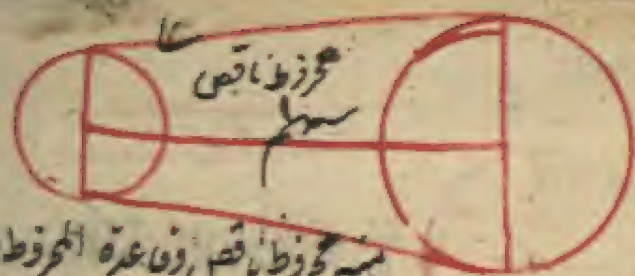 مخروط ناقص
سهم
مخروط ناقص وقاعدة المخروط